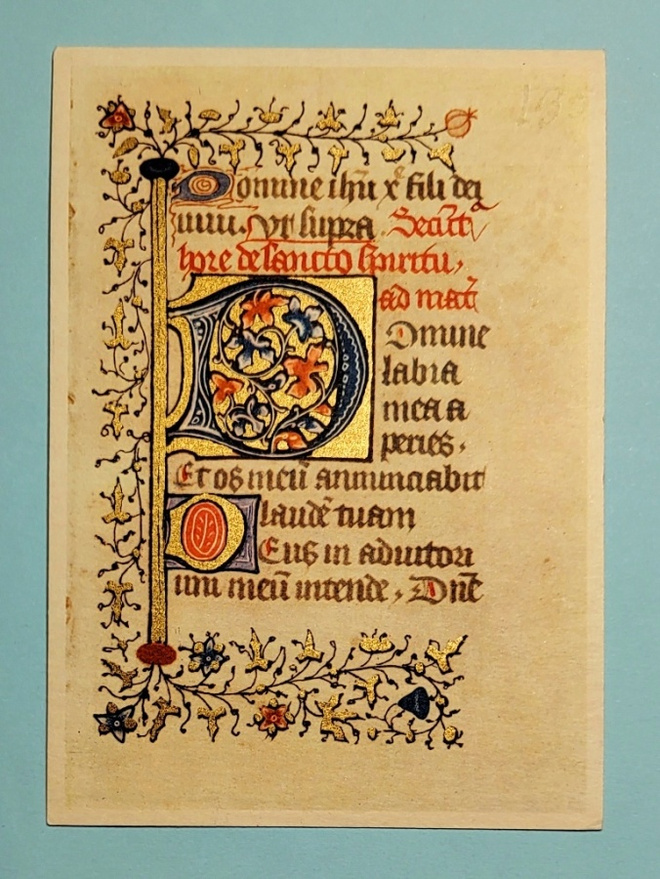 Domine ihū xē fili dei
uiui. Vt supra. Secūt̄
hore de sancto spiritu,
ad mat̄
Domine
labia
mea a
peries.
Et os meū annunciabit
laudē tuam
Deus in adiutori
um meū intende, Dn̄e